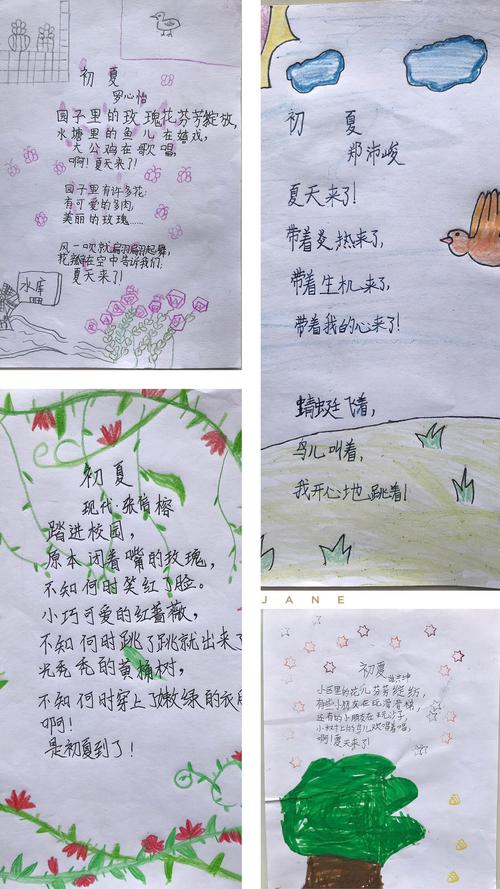 初 夏
罗心怡
园子里的玫瑰花芬芳绽放,
水塘里的鱼儿在嬉戏,
大公鸡在歌唱,
啊!夏天来了!
园子里有许多花:
有可爱的多肉,
美丽的玫瑰……
风一吹就翩翩起舞,
花瓣在空中告诉我们:
夏天来了!
水库
初 夏
郑沛峻
夏天来了!
带着炎热来了,
带着生机来了,
带着我的心来了!
蜻蜓飞着,
鸟儿叫着,
我开心地跳着!
初 夏
现代·张信榕
踏进校园,
原本闭着嘴的玫瑰,
不知何时笑红了脸。
小巧可爱的红蔷薇,
不知何时跳了跳就出来了
光秃秃的黄桷树,
不知何时穿上了嫩绿的衣服
啊!
是初夏到了!
JANE
初夏
小区里的花儿芬芳绽放,
有些小朋友在玩滑滑梯,
还有的小朋友在玩沙子,
小树上的鸟儿欢唱着唱,
啊!夏天来了!